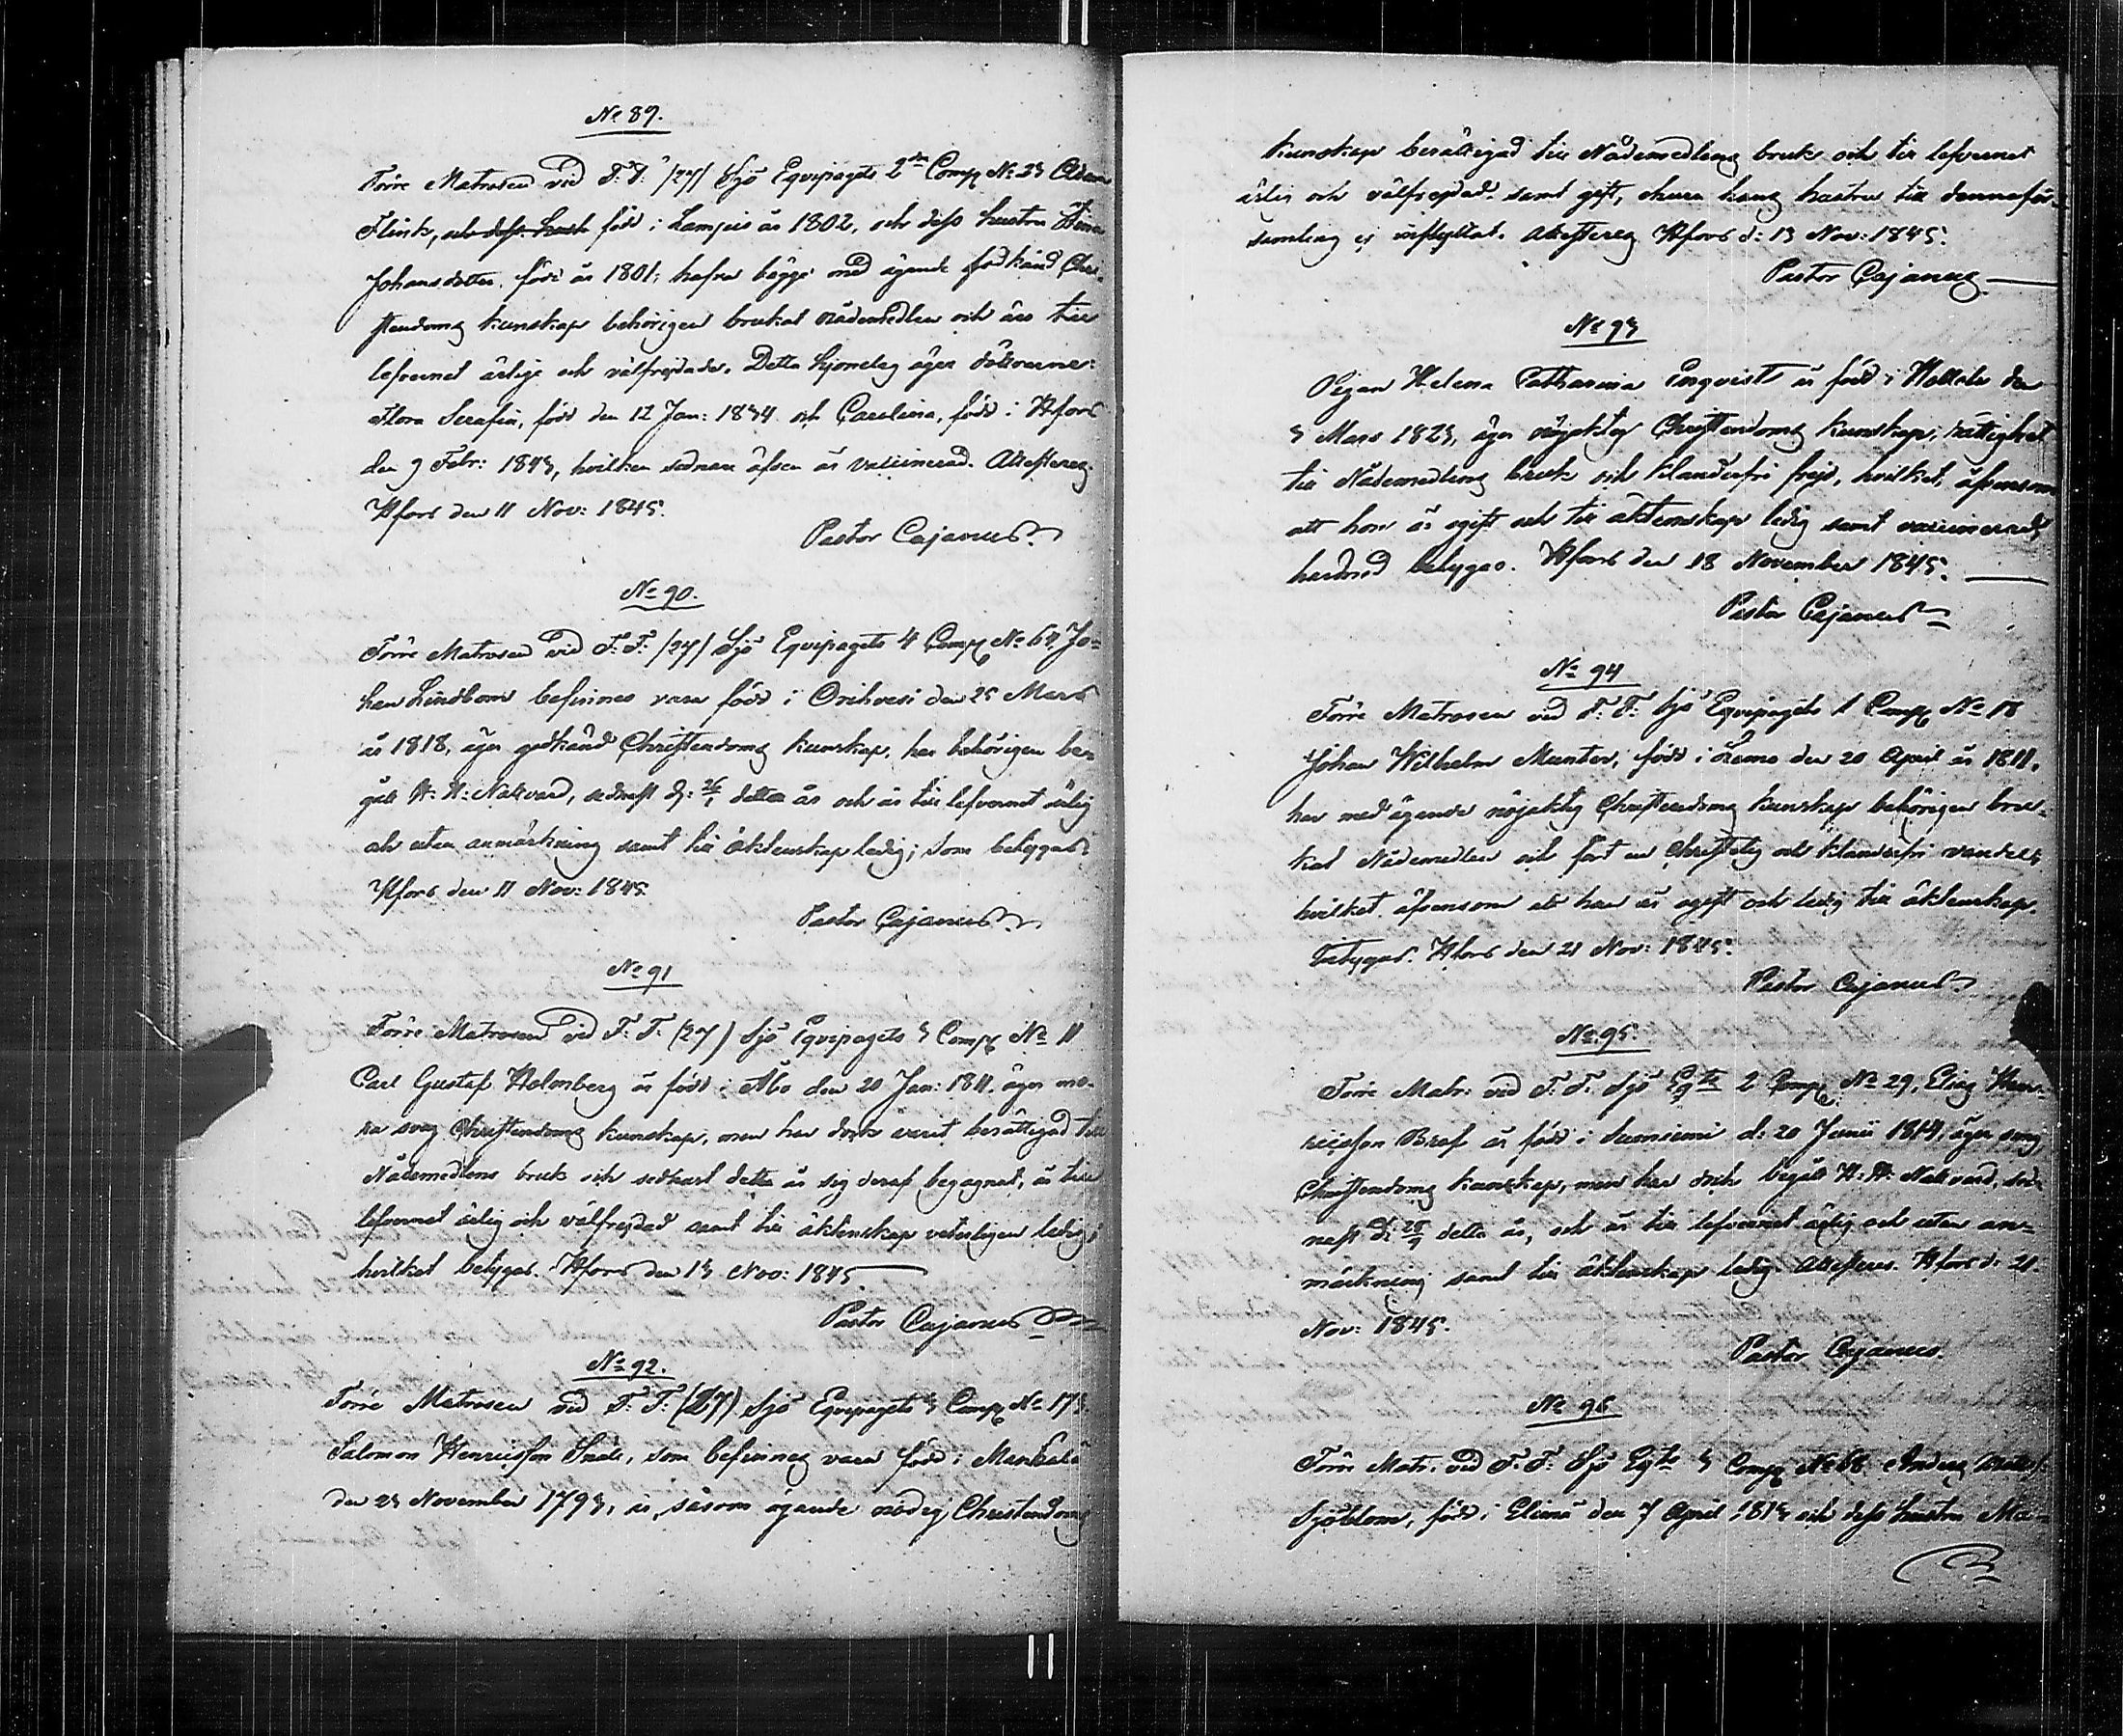 No 89.
Förre Matrosen vid F: F: /27/ Sjö Equipagets 2dra Comp. No 23 Adam
Flink, och dess hust född i Lampis år 1802, och dess hustru Stina
Johansdotter, född år 1801; hafva bägge med ägande godkänd Chri-
stendoms kunskap behörigen brukat nådemedlen och äro till
lefvernet ärlige och välfrejdade. Detta hjonelag äger döttrarne:
Flora Serafia, född den 12 Jan: 1834 och Carolina, född i Hfors
den 9 Febr: 1843, hvilken sednare äfven är vaccinerad. Attesteras.
Hfors den 11 Nov: 1845.
Pastor Cajanus.
No 90.
Förre Matrosen vid F: F: /27/ Sjö Equipagets 4 Comp. No 64, Jo-
han Lindbom befinnes vara född i Orihvesi den 25 Mars
år 1818, äger godkänd Christendoms kunskap, har behörigen be-
gått H: H: Nattvard, sednast d: 26/1 detta år och är till lefvernet ärlig
och utan anmärkning samt till äktenskap ledig; som betygas.
Hfors den 11 Nov: 1845.
Pastor Cajanus
No 91
Förre Matrosen vid F: F: (27) Sjö Equipagets 3 Comp. No 11
Carl Gustaf Holmberg är född i Åbo den 20 Jan: 1811. äger
svag Christendoms kunskap, men har dock varit berättigad till
Nådemedlens bruk och sednast detta år sig deraf begagnat, är till
lefvernet ärlig och välfrejdad samt till äktenskap veterligen ledig,
hvilket betygas. Hfors den 13 Nov: 1845.
Pastor Cajanus
No 92.
Förre Matrosen vid F: F: (27) Sjö Equipagets 3 Comp. No 173
Salomon Henricsson, som befinnes vara född i
den 23 November 1793, är, såsom ägande nödig Christendoms
kunskap berättigad till Nådemedlens bruk och till lefvernet
ärlig och välfrejdad samt gift, ehuru hans hustru till denna för-
samling ej inflyttat. Attesteras Hfors d: 13 Nov: 1845.
Pastor Cajanus
No 93
Pigan Helena Catharina Enqvist är född i Hollola den
3 Mars 1823, äger nöjaktig Christendoms kunskap, rättighet
till Nådemedlens bruk och klanderfri frejd, hvilket, äfvensom
att hon är ogift och till äktenskap ledig samt vaccinerad,
härmed betygas. Hfors den 18 November 1845.
Pastor Cajanus
No 94
Förre Matrosen vid F: F: Sjö Equipagets 1 Comp. No 18
Johan Wilhelm Munter, född i Lemo den 20 April år 1811.
har med ägande nöjaktig Christendoms kunskap behörigen bru-
kat Nådemedlen och fört en christelig och klanderfri vandel;
hvilket, äfvensom att han är ogift och ledig till äktenskap,
betygas. Hfors den 21 Nov: 1845.
Pastor Cajanus.
No 95.
Förre Matr: vid F: F: Sjö Eqts 2 Comp. No 29, Elias Hen-
ricsson Braf är född i Sumiani d: 20 Junii 1814, äger svag
Christendoms kunskap, men har dock begått H: H: Nattvard, sed-
nast d: 28/9 detta år, och är till lefvernet ärlig och utan an-
märkning samt till äktenskap ledig. Attesteras. Hfors d: 21
Nov: 1845.
Pastor Cajanus.
No 96
Förre Matr. vid F: F: Sjö Eqts 3 Comp. No 68 Anders Matts:
Sjöblom, född i Elimä den 7 April 1813 och dess hustru Ma-